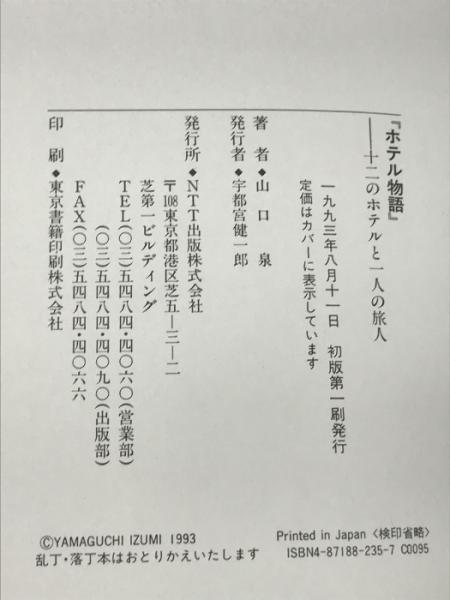 『ホテル物語』
――十二のホテルと一人の旅人
一九九三年八月十一日　初版第一刷発行
定価はカバーに表示しています
著　者◆山　口　　泉
発行者◆宇都宮健一郎
発行所◆ＮＴＴ出版株式会社
〒108東京都港区芝五―三―二
芝第一ビルディング
ＴＥＬ（〇三）五四八四・四〇六〇（営業部）
（〇三）五四八四・四〇九〇（出版部）
ＦＡＸ（〇三）五四八四・四〇六六
印　刷◆東京書籍印刷株式会社
©YAMAGUCHI IZUMI 1993
乱丁・落丁本はおとりかえいたします
Printed in Japan〈検印省略〉
ISBN4-87188-235-7 C0095